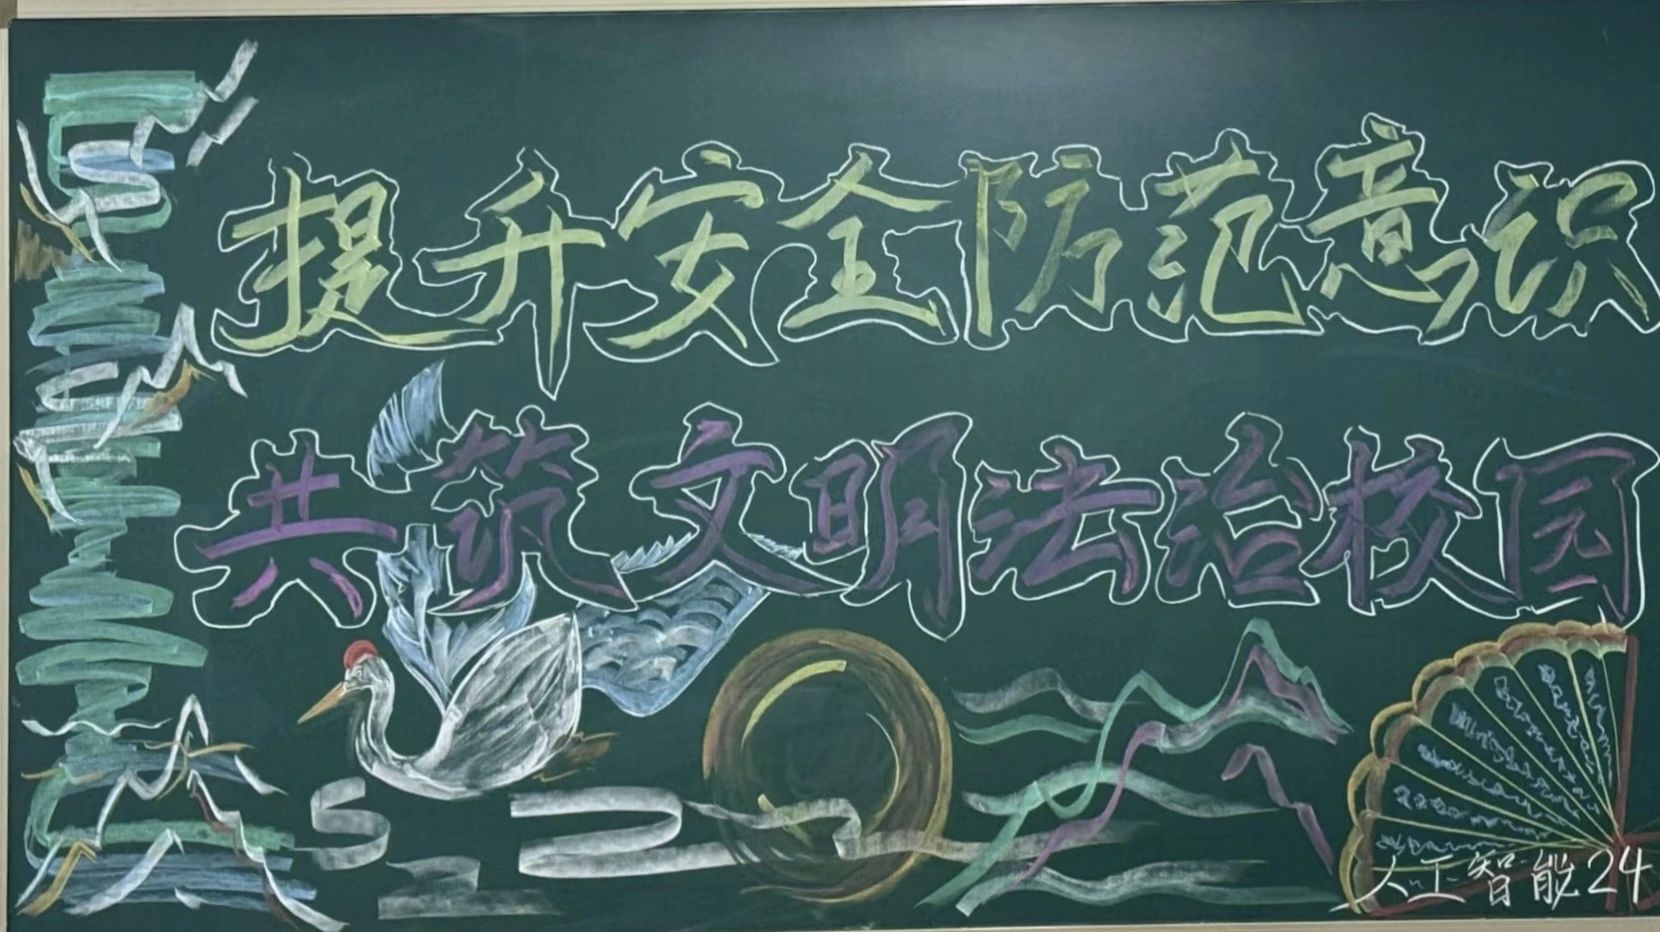 提升安全防范意识
共筑文明法治校园
人工智能24